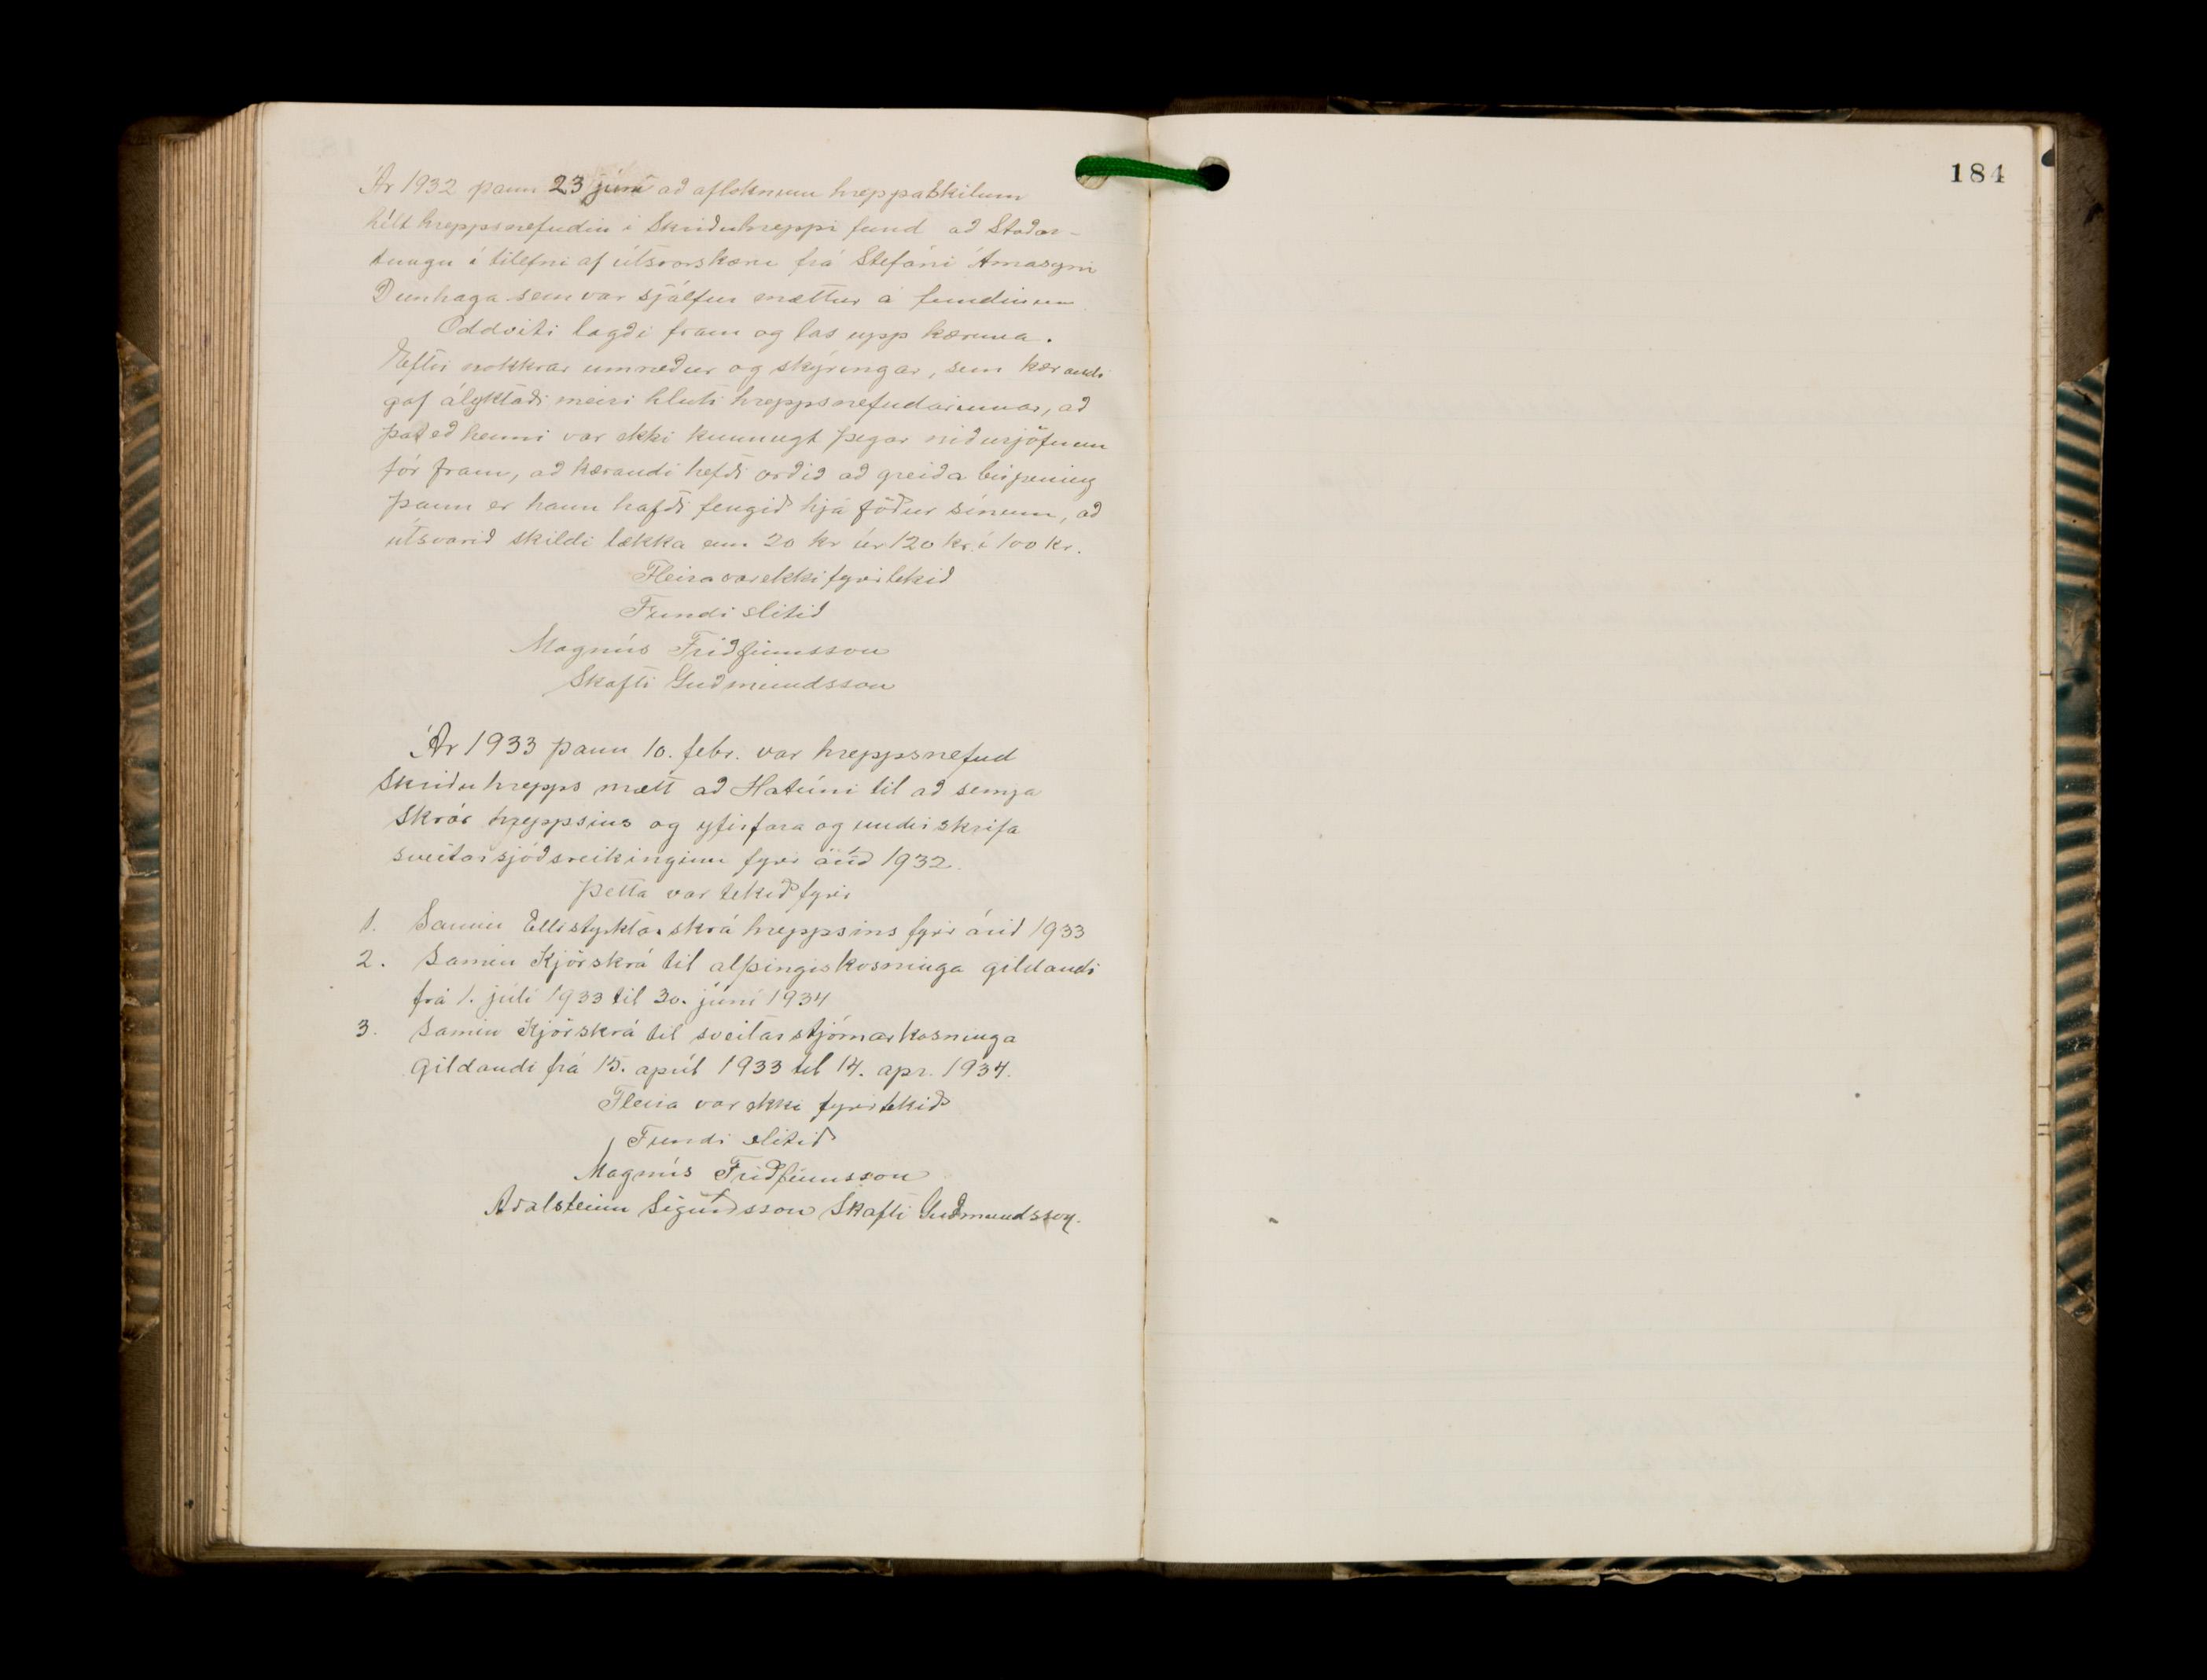 Ár 1932 þann 23 júní að afloknum hreppaskilum
hélt hreppsnefndin í Skriðuhreppi fund að Staðar-
tungu í tilefni af útsvarskæru frá Stefáni Árnasyni
Dunhaga sem var sjálfur mættur á fundinum
Oddviti lagði fram og las upp kæruna.
Eftir nokkrar umræður og skýringar, sem kærandi
gaf ályktaði meiri hluti hreppsnefndarinnar, að
það eð henni var ekki kunnugt þegar niðurjöfnun
fór fram, að kærandi hefði orðið að greiða búpening
þann er hann hafði fengið hjá föður sínum, að
útsvarið skildi lækka um 20 kr úr 120 kr. í 100 kr.
Fleira var ekki fyrirtekið
Fundi slitið
Magnús Friðfinnsson
Skafti Guðmundsson
Ár 1933 þann 10. febr. var hreppsnefnd
Skriðuhrepps mætt að Hátúni til að semja
skrár hreppsins og yfirfara og undirskrifa
sveitarsjóðsreikinginn fyrir árið 1932.
Þetta var tekið fyrir
1. Samin Ellistyrktarskrá hreppsins fyrir árið 1933
2. Samin Kjörskrá til alþingiskosninga gildandi
frá 1. júlí 1933 til 30. júní 1934
3. Samin Kjörskrá til sveitarstjórnarkosninga
gildandi frá 15. apríl 1933 til 14. apr. 1934.
Fleira var ekki fyrirtekið
Fundi slitið
Magnús Friðfinnsson
Aðalsteinn Sigurðsson Skafti Guðmundsson.
184